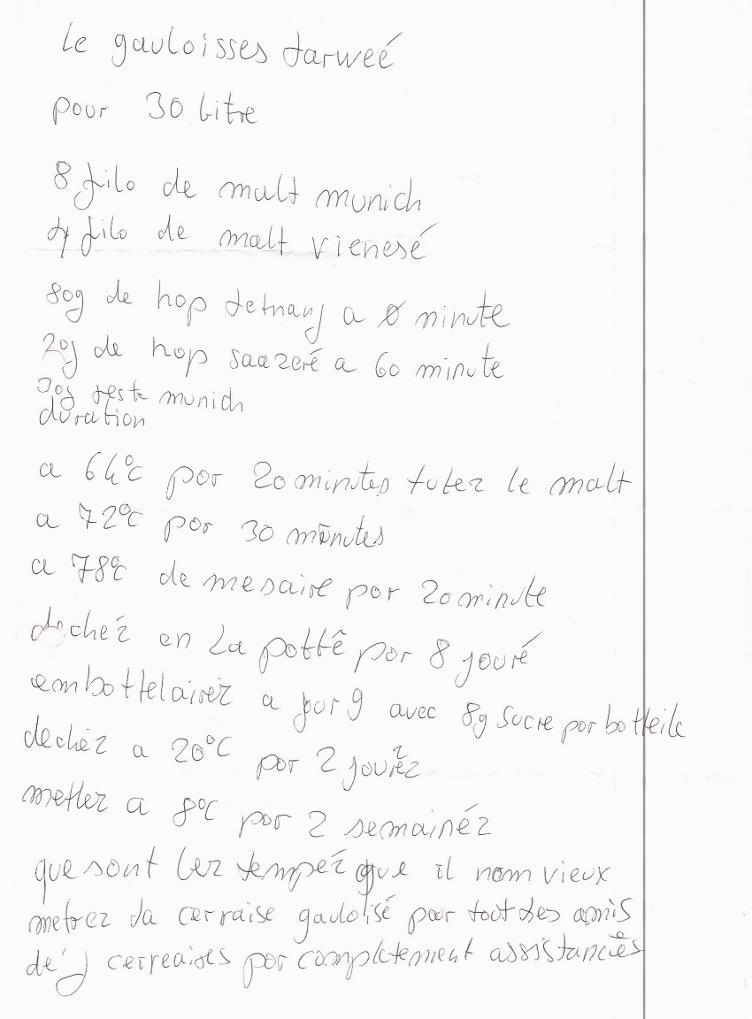 Le gauloisses tarweé
pour 30 Litre
8 filo de malt munich
4 filo de malt vienesé
80g de hop tetnanj a 0 minute
20g de hop saazeré a 60 minute
30g reste munich
duration
a 64°C por 20 minutes tutez le malt
a 72°C por 30 minutes
a 78°C de mesaire por 20 minute
dechéz en La pottê por 8 jouré
embottelairez a jour 9 avec 8g sucre por botteile
dechéz a 20°C por 2 jouréz
mettez a 8°C por 2 semainéz
que sont lez tempéz que il nom vieux
metrez da cerraise gaulolisé pour tout des amis
de j cerreaises por completement assistanceês